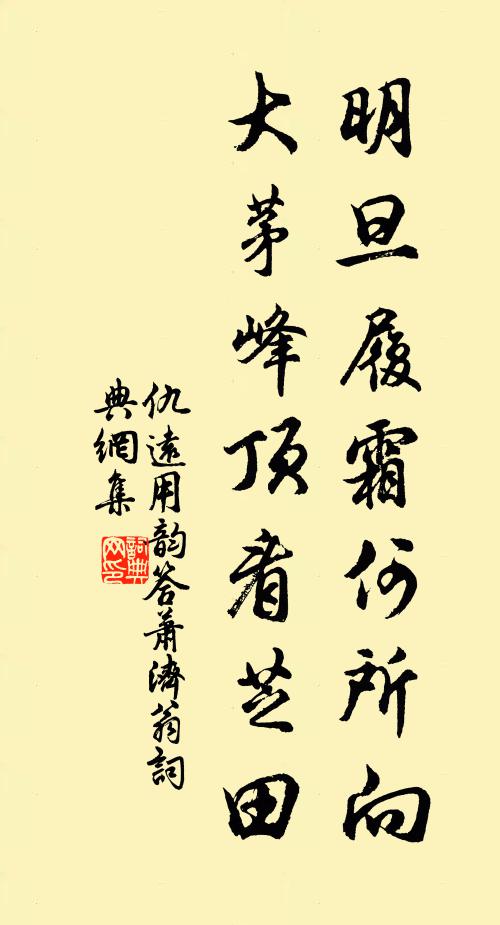 明旦履霜何所向
大茅峰顶看芝田
仇遠用韵答萧濟翁詞
典網集
詞典网印